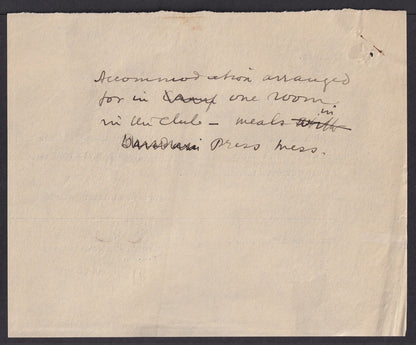 Accommodation arranged
for in one room
in the Club – meals in
Press mess.